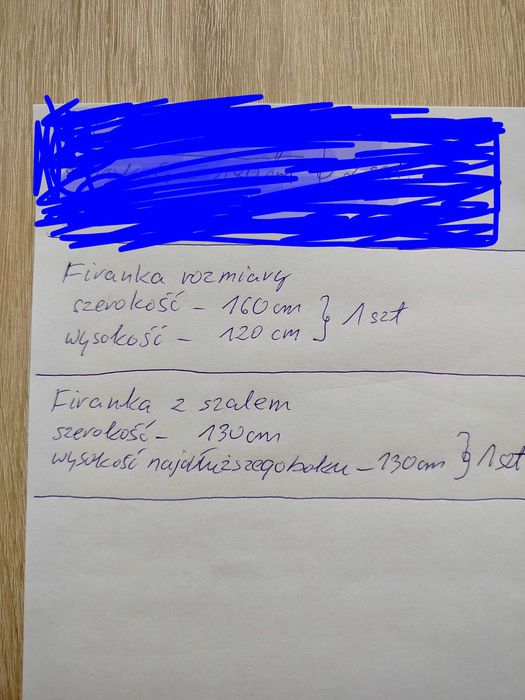 Firanka rozmiary
szerokość – 160 cm } 1 szt
wysokość – 120 cm
Firanka z szalem
szerokość – 130 cm
wysokość najdłuższego boku – 130 cm } 1 szt